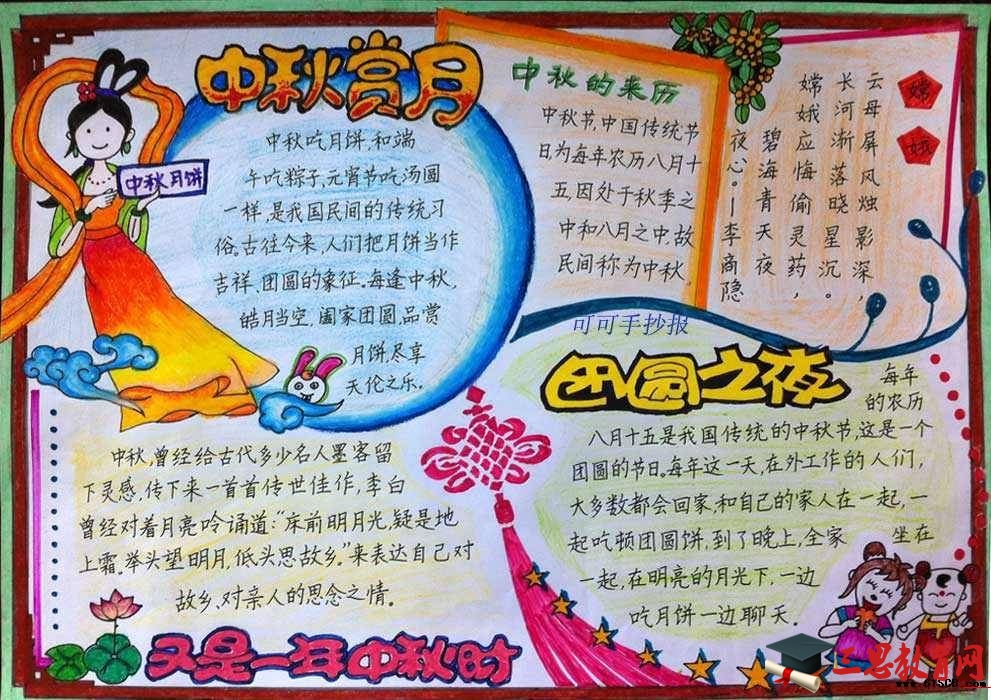 中秋赏月
中秋吃月饼,和端
午吃粽子,元宵节吃汤圆
一样,是我国民间的传统习
俗。古往今来,人们把月饼当作
吉祥、团圆的象征。每逢中秋,
皓月当空,阖家团圆,品赏
月饼,尽享
天伦之乐。
中秋月饼
中秋的来历
中秋节,中国传统节
日为每年农历八月十
五,因处于秋季之
中和八月之中,故
民间称为中秋。
嫦娥
云母屏风烛影深，
长河渐落晓星沉。
嫦娥应悔偷灵药，
碧海青天夜
夜心。—李商隐
可可手抄报
团圆之夜
每年
的农历
八月十五是我国传统的中秋节,这是一个
团圆的节日。每年这一天,在外工作的人们,
大多数都会回家,和自己的家人在一起,一
起吃顿团圆饼,到了晚上,全家 坐在
一起,在明亮的月光下,一边
吃月饼一边聊天.
中秋,曾经给古代多少名人墨客留
下灵感,传下来一首首传世佳作,李白
曾经对着月亮吟诵道:“床前明月光,疑是地
上霜。举头望明月,低头思故乡。”来表达自己对
故乡、对亲人的思念之情。
又是一年中秋时
三思教育网